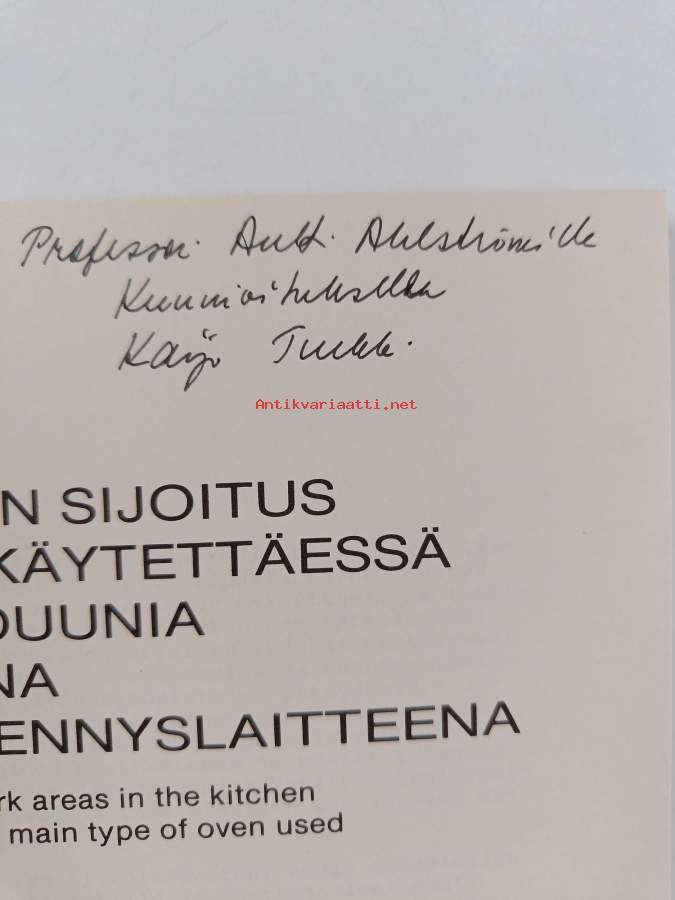 Professori Antti Ahlströmille
Kunnioituksella
Kaijo Tuikki
Antikvariaatti.net
N SIJOITUS
KÄYTETTÄESSÄ
DUUNIA
NA
ENNYSLAITTEENA
rk areas in the kitchen
main type of oven used